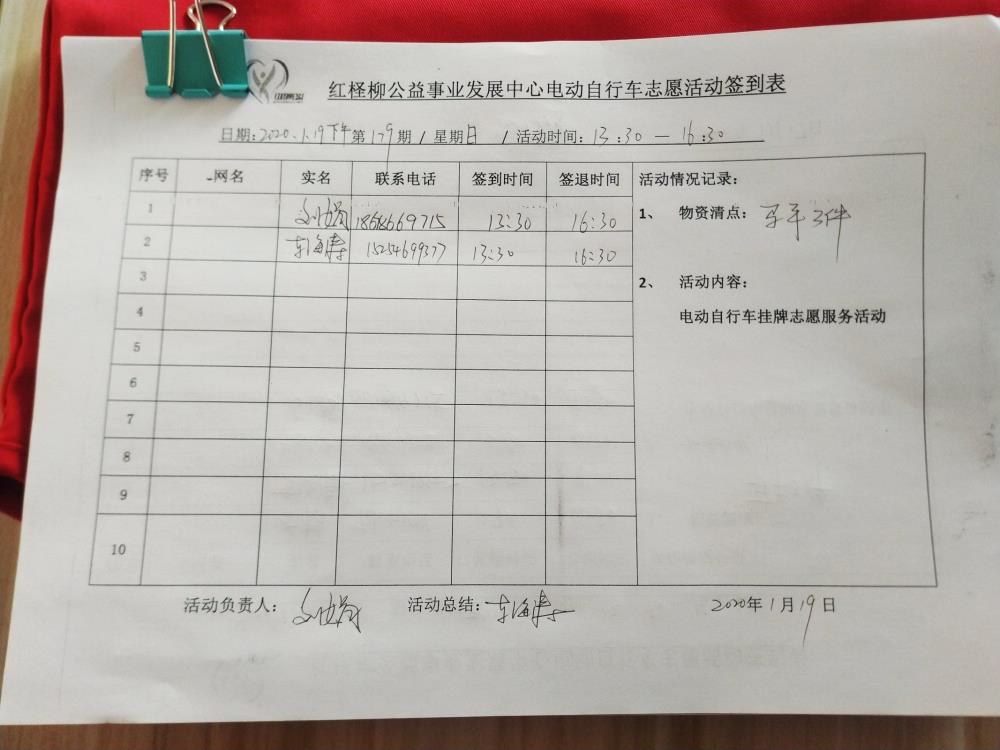 红柽柳公益事业发展中心电动自行车志愿活动签到表
日期:2020.1.19下午第179期 / 星期日 / 活动时间: 13:30 — 16:30
序号 -网名 实名 联系电话 签到时间 签退时间 活动情况记录:
1 18618669715 13:30 16:30
1、 物资清点: 3件
2 15254699377 13:30 16:30
2、 活动内容:
电动自行车挂牌志愿服务活动
3
4
5
6
7
8
9
10
活动负责人: 活动总结:
2020年1月19日